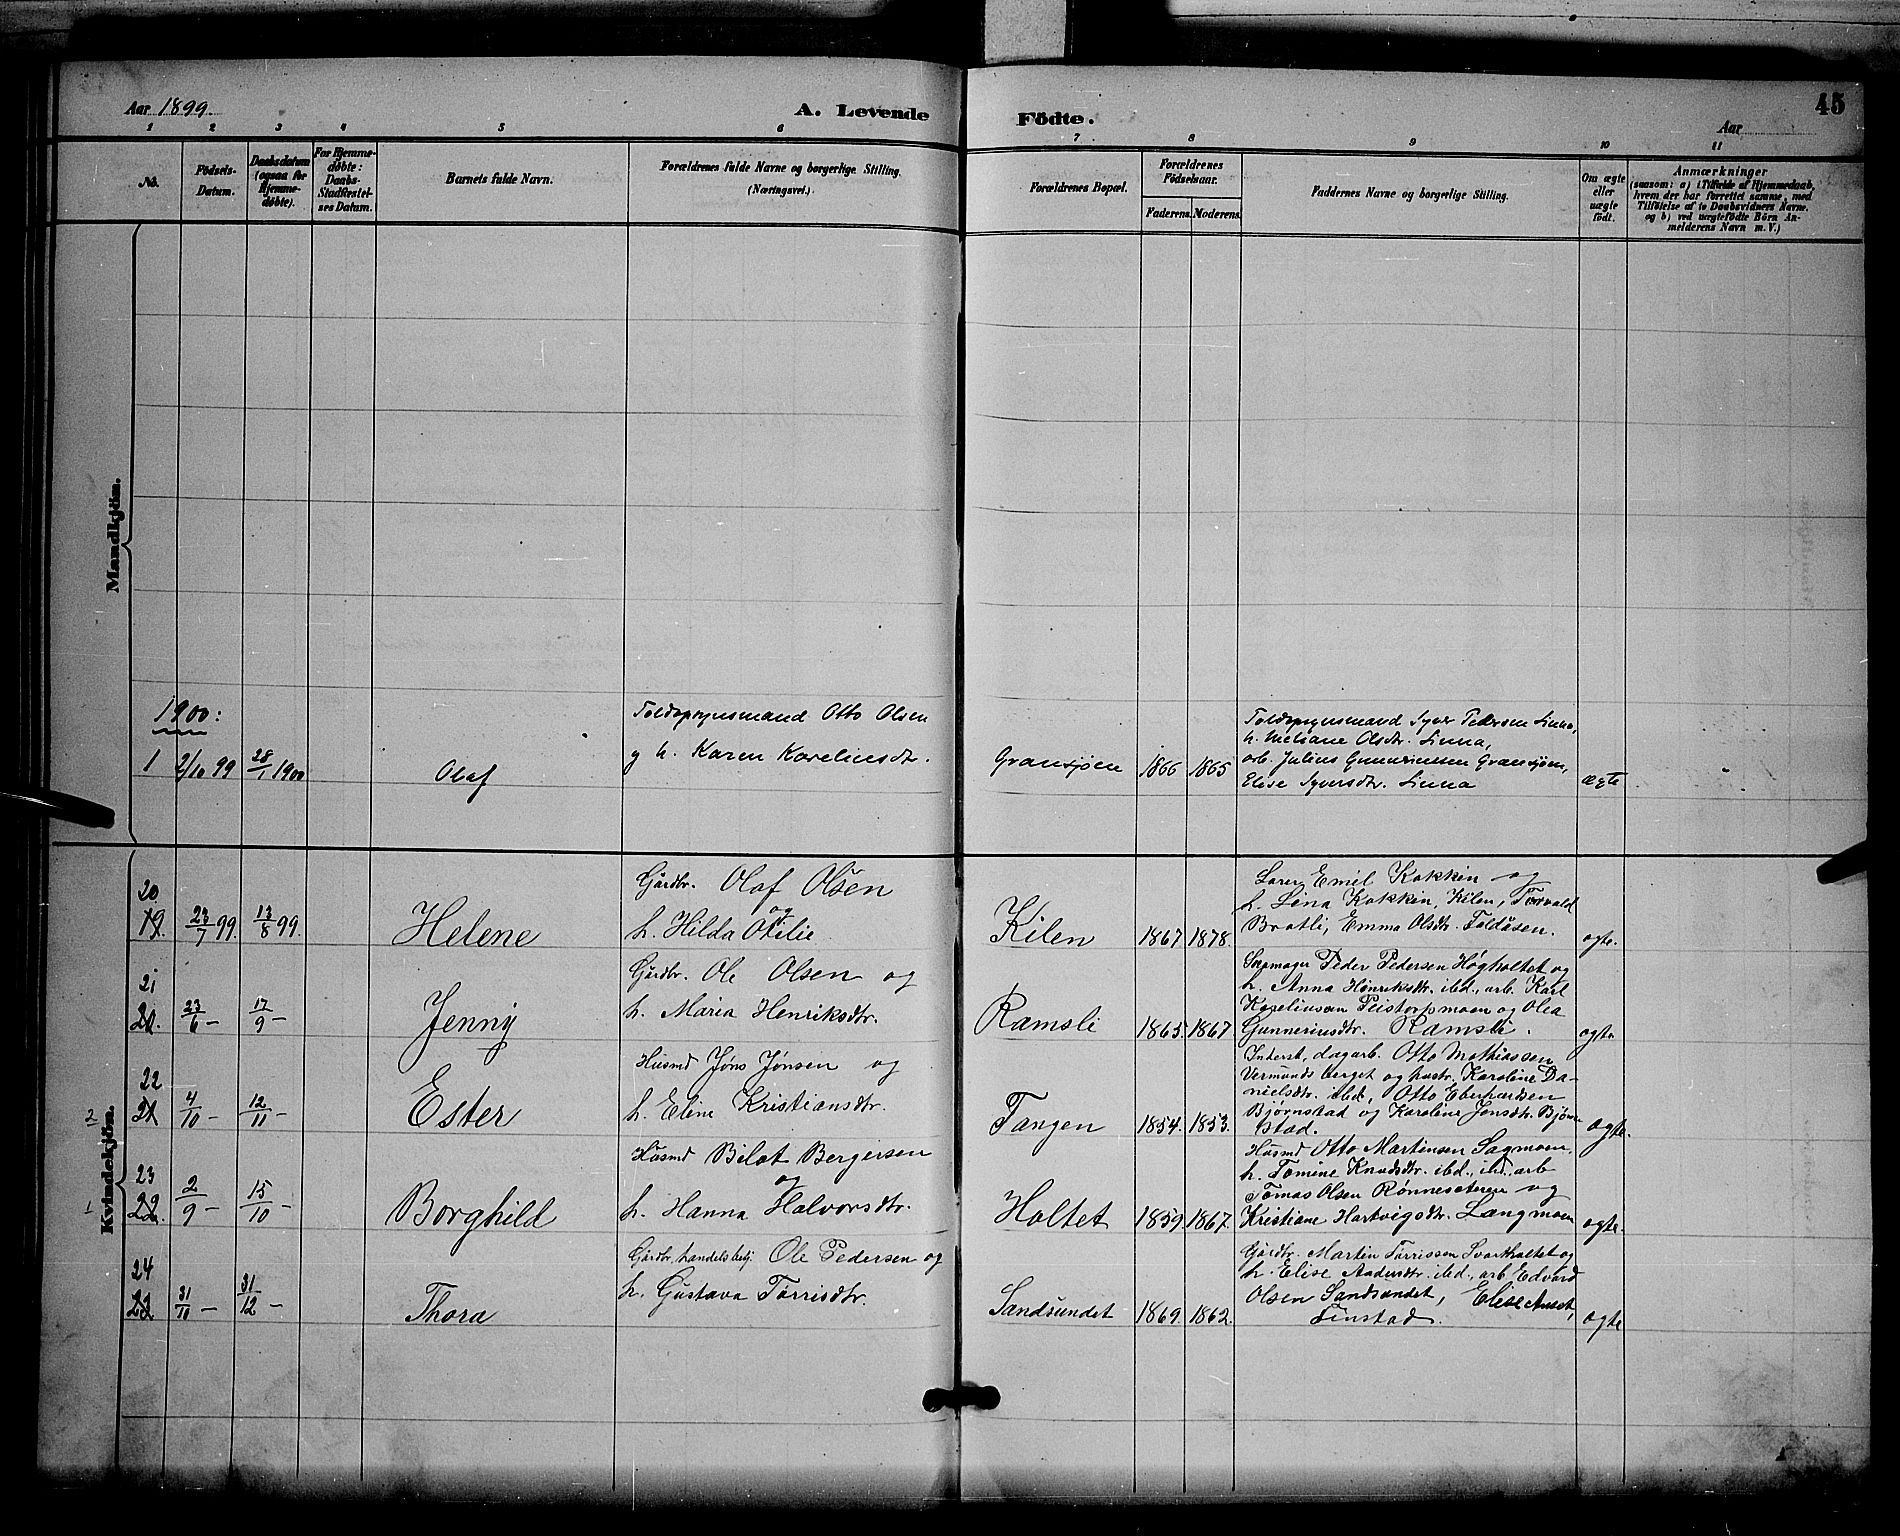 Aar 1899.
A. Levende Födte.
Aar
45
1 2 3 4 5 6 7 8 9 10 11
No.
Födsels-Datum.
Daabsdatum (ogsaa for Hjemme-døbte).
For Hjemme-døbte: Daabs-Stadfæstel-ses Datum.
Barnets fulde Navn.
Forældrenes fulde Navne og borgerlige Stilling.
(Næringsvei.)
Forældrenes Bopæl.
Forældrenes Födselsaar.
Faderens. Moderens.
Faddernes Navne og borgerlige Stilling.
Om ægte eller uægte født.
Anmærkninger
(saasom: a) i Tilfælde af Hjemmedaab, hvem der har forrettet samme, med Tilföielse af to Daabsvidners Navne, og b) ved uægtefödte Börn An-melderens Navn m. V.)
Mandkjön.
1900:
1 2/10 99 28/1 1900 Olaf
Toldopsynsmand Otto Olsen
og h. Karen Kareliusdt.
Gransjøen 1866 1865
Toldopsynsmand Syver Pedersen Linna,
h. Meliane Olsdtr. Linna,
arb. Julius Gunneriusen Gransjøen,
Elise Syversdtr. Linna
ægte
Kvindekjön.
20
19. 23/7 99. 13/8 99. Helene
Gårdbr. Olaf Olsen
og
h. Hilda Otilie
Kilen 1867 1878.
Lærer Emil Kokkin og
h. Lina Kokkin, Kilen, Torvald
Bratli, Emma Olsdtr. Foldåsen.
ægte.
21
20. 23/6 – 17/9 – Jenny
Gårdbr. Ole Olsen og
h. Maria Henriksdtr.
Ramsli 1865. 1867
Skomager Peder Pedersen Høgholtet og
h. Anna Henriksdtr. ibd., arb. Karl
Kareliusen Peistorpmoen og Olea
Gunneriusdtr. Ramsli.
ægte
22
21 4/10 – 12/11 – Ester
Husmd Jøns Jønsen og
h. Eline Kristiansdtr.
Tangen 1854. 1853.
Inderst, dagarb. Otto Mathiassen
Vermundsberget og hustr. Karoline Da-
nielsdtr. ibd., Otto Eberhardsen
Bjørnstad og Karoline Jonsdtr. Bjørn-
stad.
ægte.
2
23
22. 2/9 – 15/10 – Borghild
Husmd Belat Bergersen
og
h. Hanna Halvorsdtr.
Holtet 1859 1867.
Husmd Otto Martinsen Sagmoen,
h. Tomine Knudsdtr. ibd., ibd., arb
Tomas Olsen Rønneseteren og
Kristiane Hartvigsdtr. Langmoen
ægte.
1
24
23 31/10 – 31/12 – Thora
Gårdbr. handelsbetj. Ole Pedersen og
h. Gustava Tørrisdtr.
Sandsundet 1869. 1862.
Gårdbr. Martin Tørrissen Svartholtet og
h. Elise Andersdtr. ibd., arb. Edvard
Olsen Sandsundet, Elise Auset,
Finstad.
ægte